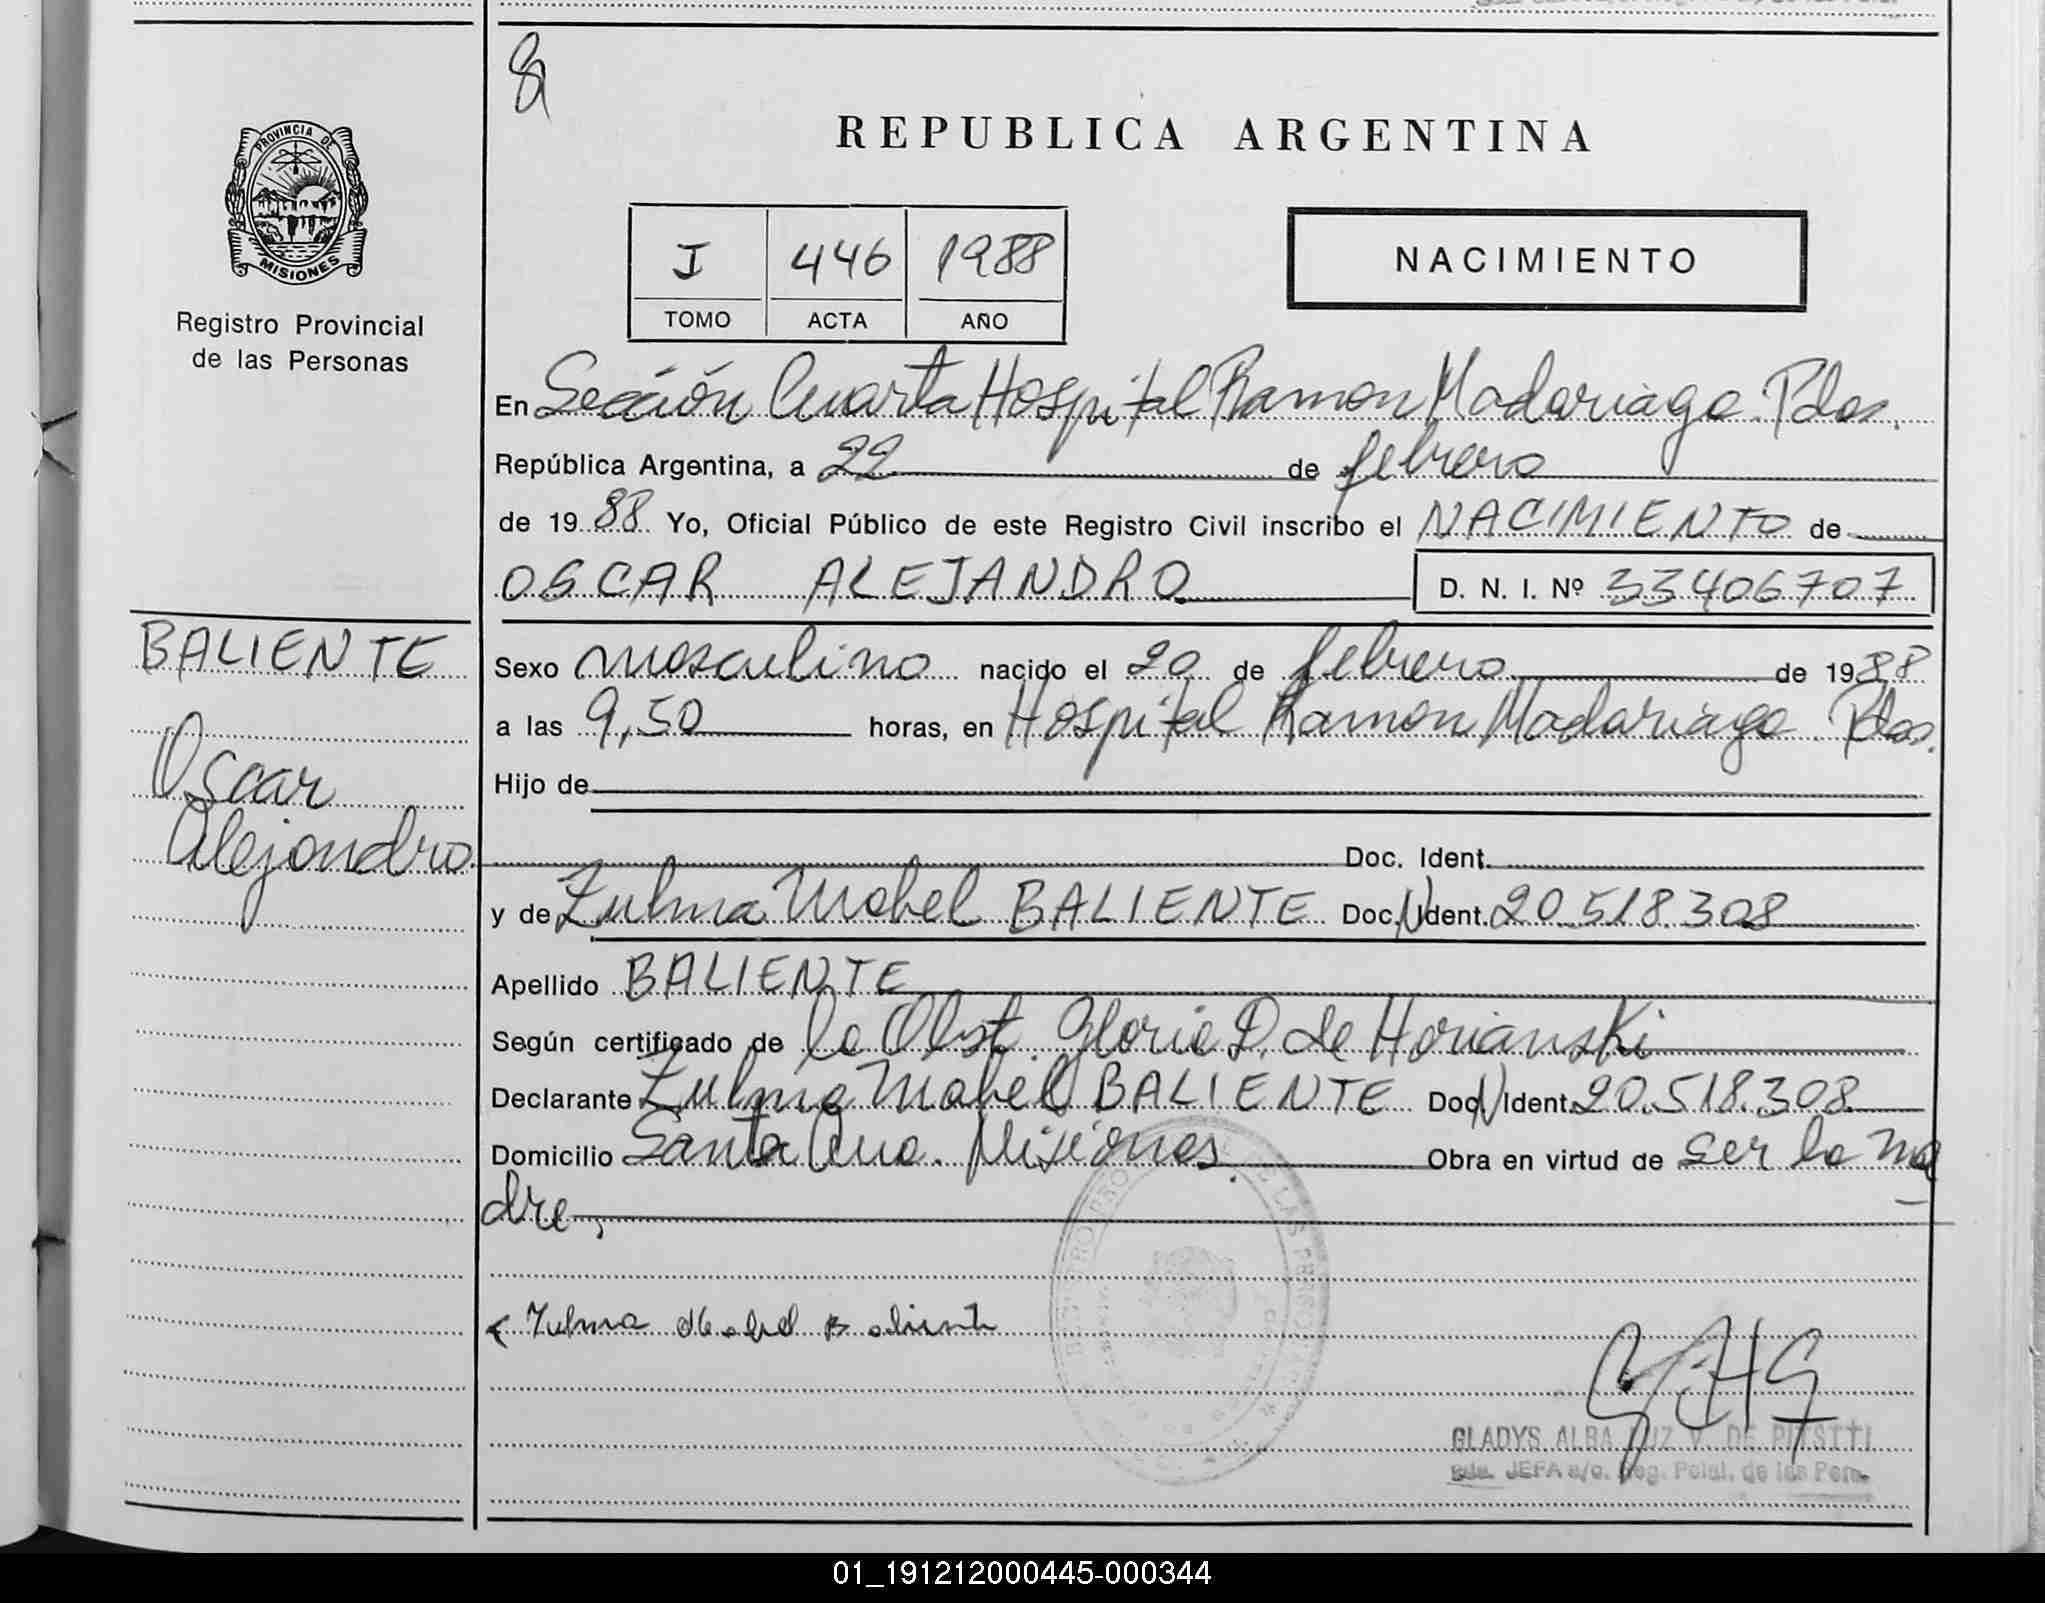 REPUBLICA ARGENTINA
PROVINCIA DE
MISIONES
Registro Provincial
de las Personas
J 446 1988
TOMO ACTA AÑO
NACIMIENTO
En Sección Cuarta Hospital Ramon Madariaga. Pdas.
República Argentina, a 22 de febrero
de 1988 Yo, Oficial Público de este Registro Civil inscribo el NACIMIENTO de
OSCAR ALEJANDRO D. N. I. Nº 33406707
BALIENTE
Oscar
Alejandro
Sexo masculino nacido el 20 de febrero de 1988
a las 9,50 horas, en Hospital Ramon Madariaga. Pdas.
Hijo de
Doc. Ident.
y de Zulma Mabel BALIENTE Doc. N Ident. 20.518.308
Apellido BALIENTE
Según certificado de la Obst. Gloria D. de Horianski
Declarante Zulma Mabel BALIENTE Doc. N Ident. 20.518.308
Domicilio Santa Ana. Misiones. Obra en virtud de ser la ma
dre,
Zulma Mabel Baliente
GLADYS ALBA DE
JEFA a/c. Reg. Pcial. de las Pers.
01_191212000445-000344